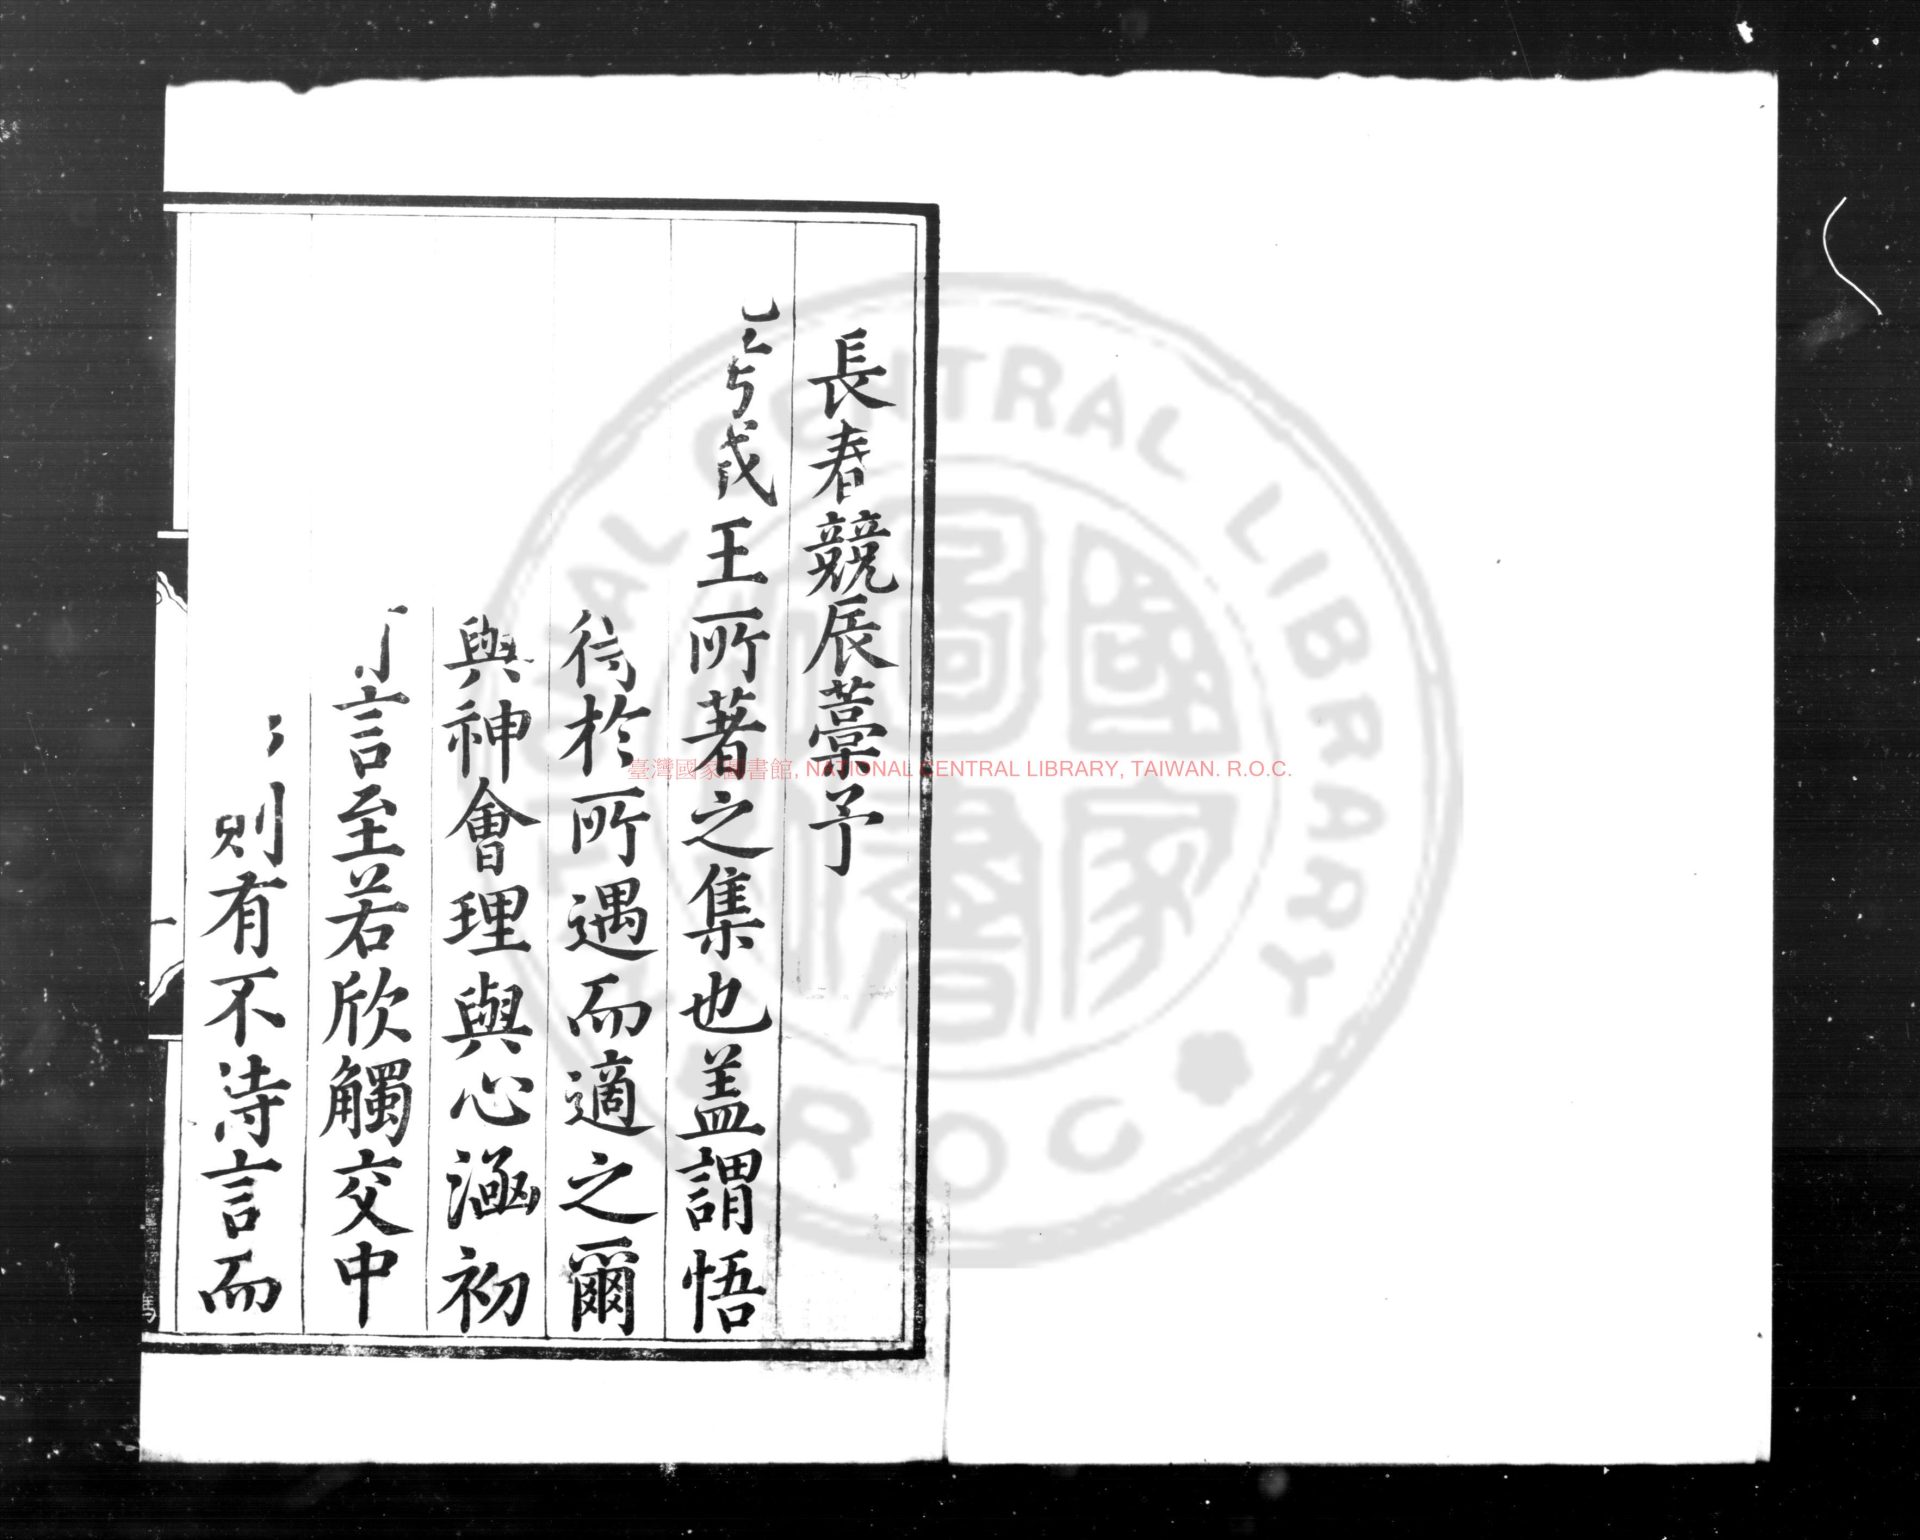 長春競辰藁予
王所著之集也盖謂悟
得於所遇而適之爾
與神會理與心涵初
言至若欣觸交中
則有不待言而
一
臺灣國家圖書館, NATIONAL CENTRAL LIBRARY, TAIWAN. R.O.C.
NATIONAL CENTRAL LIBRARY
R.O.C.
國家圖書